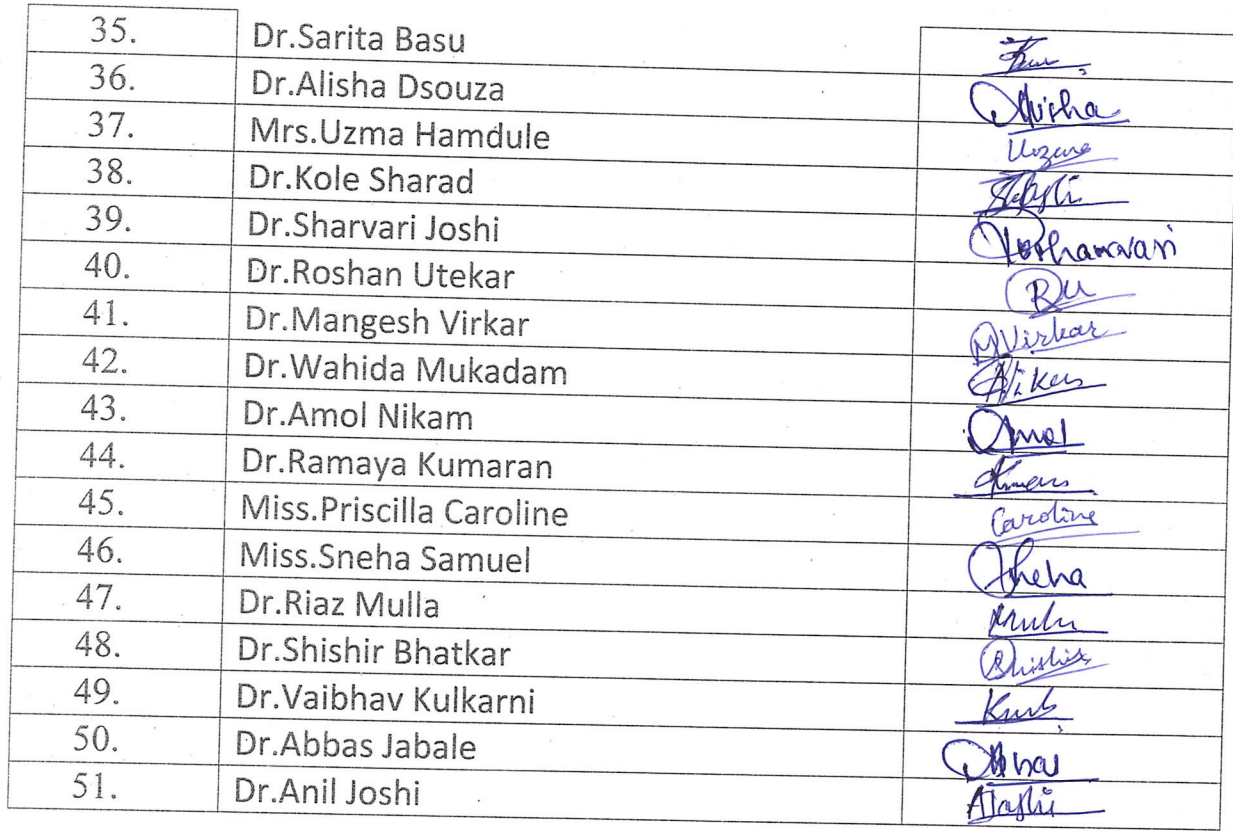 35. Dr.Sarita Basu
36. Dr.Alisha Dsouza Alisha
37. Mrs.Uzma Hamdule
38. Dr.Kole Sharad
39. Dr.Sharvari Joshi
40. Dr.Roshan Utekar RU
41. Dr.Mangesh Virkar MVirkar
42. Dr.Wahida Mukadam
43. Dr.Amol Nikam Amol
44. Dr.Ramaya Kumaran
45. Miss.Priscilla Caroline Caroline
46. Miss.Sneha Samuel Sneha
47. Dr.Riaz Mulla
48. Dr.Shishir Bhatkar Shishir
49. Dr.Vaibhav Kulkarni
50. Dr.Abbas Jabale
51. Dr.Anil Joshi AJoshi